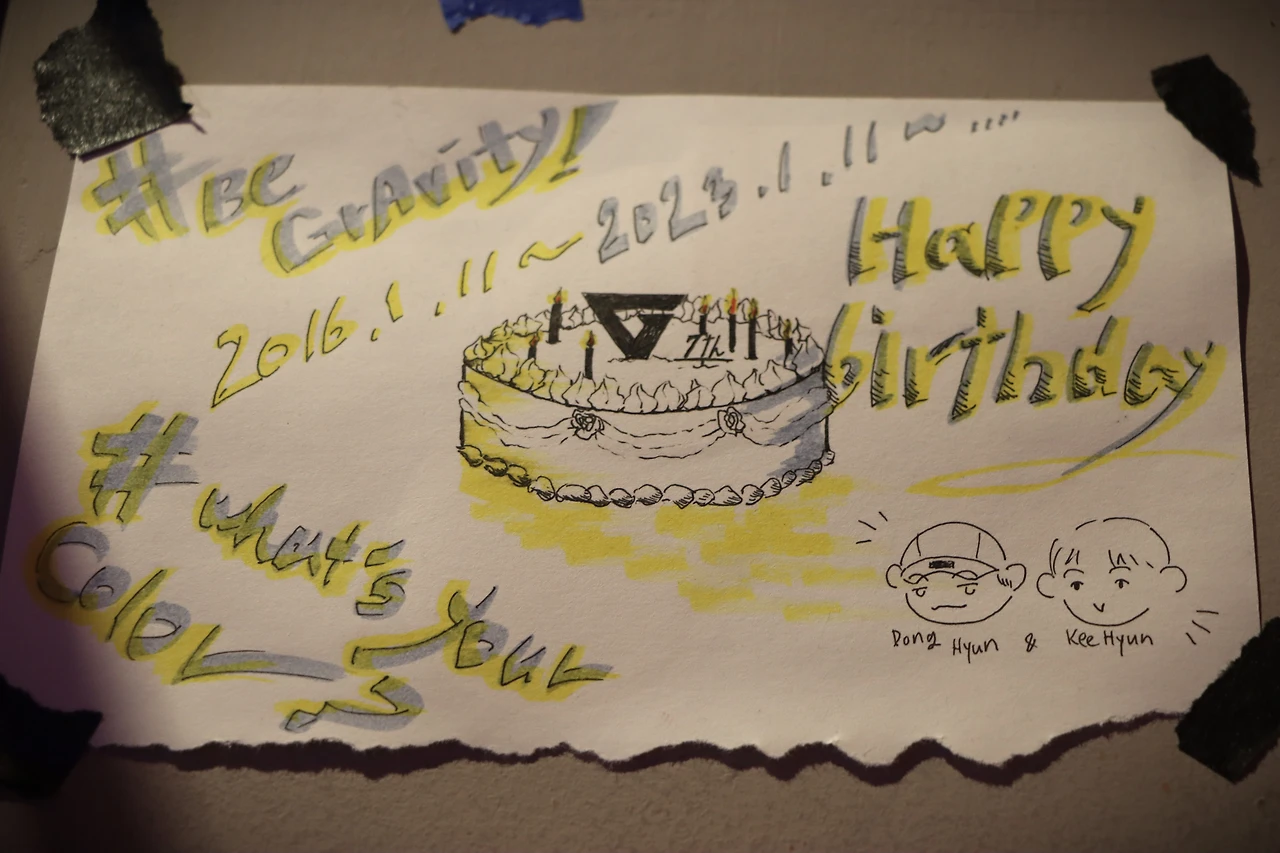 #BE
GrAvity!
2016.1.11 ~ 2023.1.11 ~ ....
Happy
birthday
7th
#what's
Color
your
Dong Hyun & KeeHyun